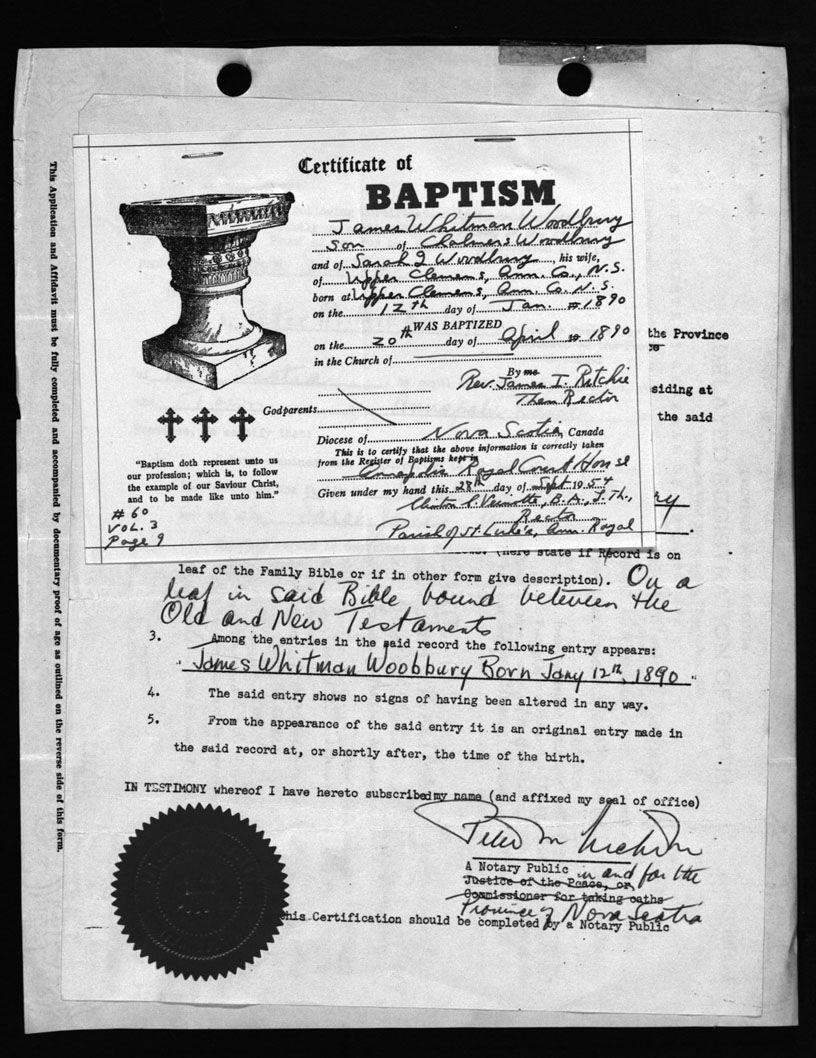 This Application and Affidavit must be fully completed and accompanied by documentary proof of age as outlined on the reverse side of this form.
Certificate of
BAPTISM
James Whitman Woodbury
Son of Woodbury
and of Sarah J Woodbury, his wife,
of Upper Clemens, Ann. Co., N.S.
born at Upper Clemens, Ann. Co. N.S.
on the 12th day of Jan. 1890
WAS BAPTIZED
on the 20th day of April 1890
in the Church of
By me
Rev. James I. Ritchie
Then Rector
Godparents
Diocese of Nova Scotia, Canada
This is to certify that the above information is correctly taken
from the Register of Baptisms kept in
Annapolis Royal Court House
Given under my hand this 28th day of Sept 1954
B.A., L.Th.,
Rector
Parish of St. Luke's, Ann. Royal
"Baptism doth represent unto us
our profession; which is, to follow
the example of our Saviour Christ,
and to be made like unto him."
# 60
VOL. 3
Page 9
the Province
siding at
the said
ry
(here state if Record is on
leaf of the Family Bible or if in other form give description). On a
leaf in said Bible bound between the
Old and New Testaments
3. Among the entries in the said record the following entry appears:
"James Whitman Woobbury Born Jany 12th, 1890"
4. The said entry shows no signs of having been altered in any way.
5. From the appearance of the said entry it is an original entry made in
the said record at, or shortly after, the time of the birth.
IN TESTIMONY whereof I have hereto subscribed my name (and affixed my seal of office)
A Notary Public in and for the
Justice of the Peace, or
Commissioner for taking oaths
Province of Nova Scotia
his Certification should be completed by a Notary Public